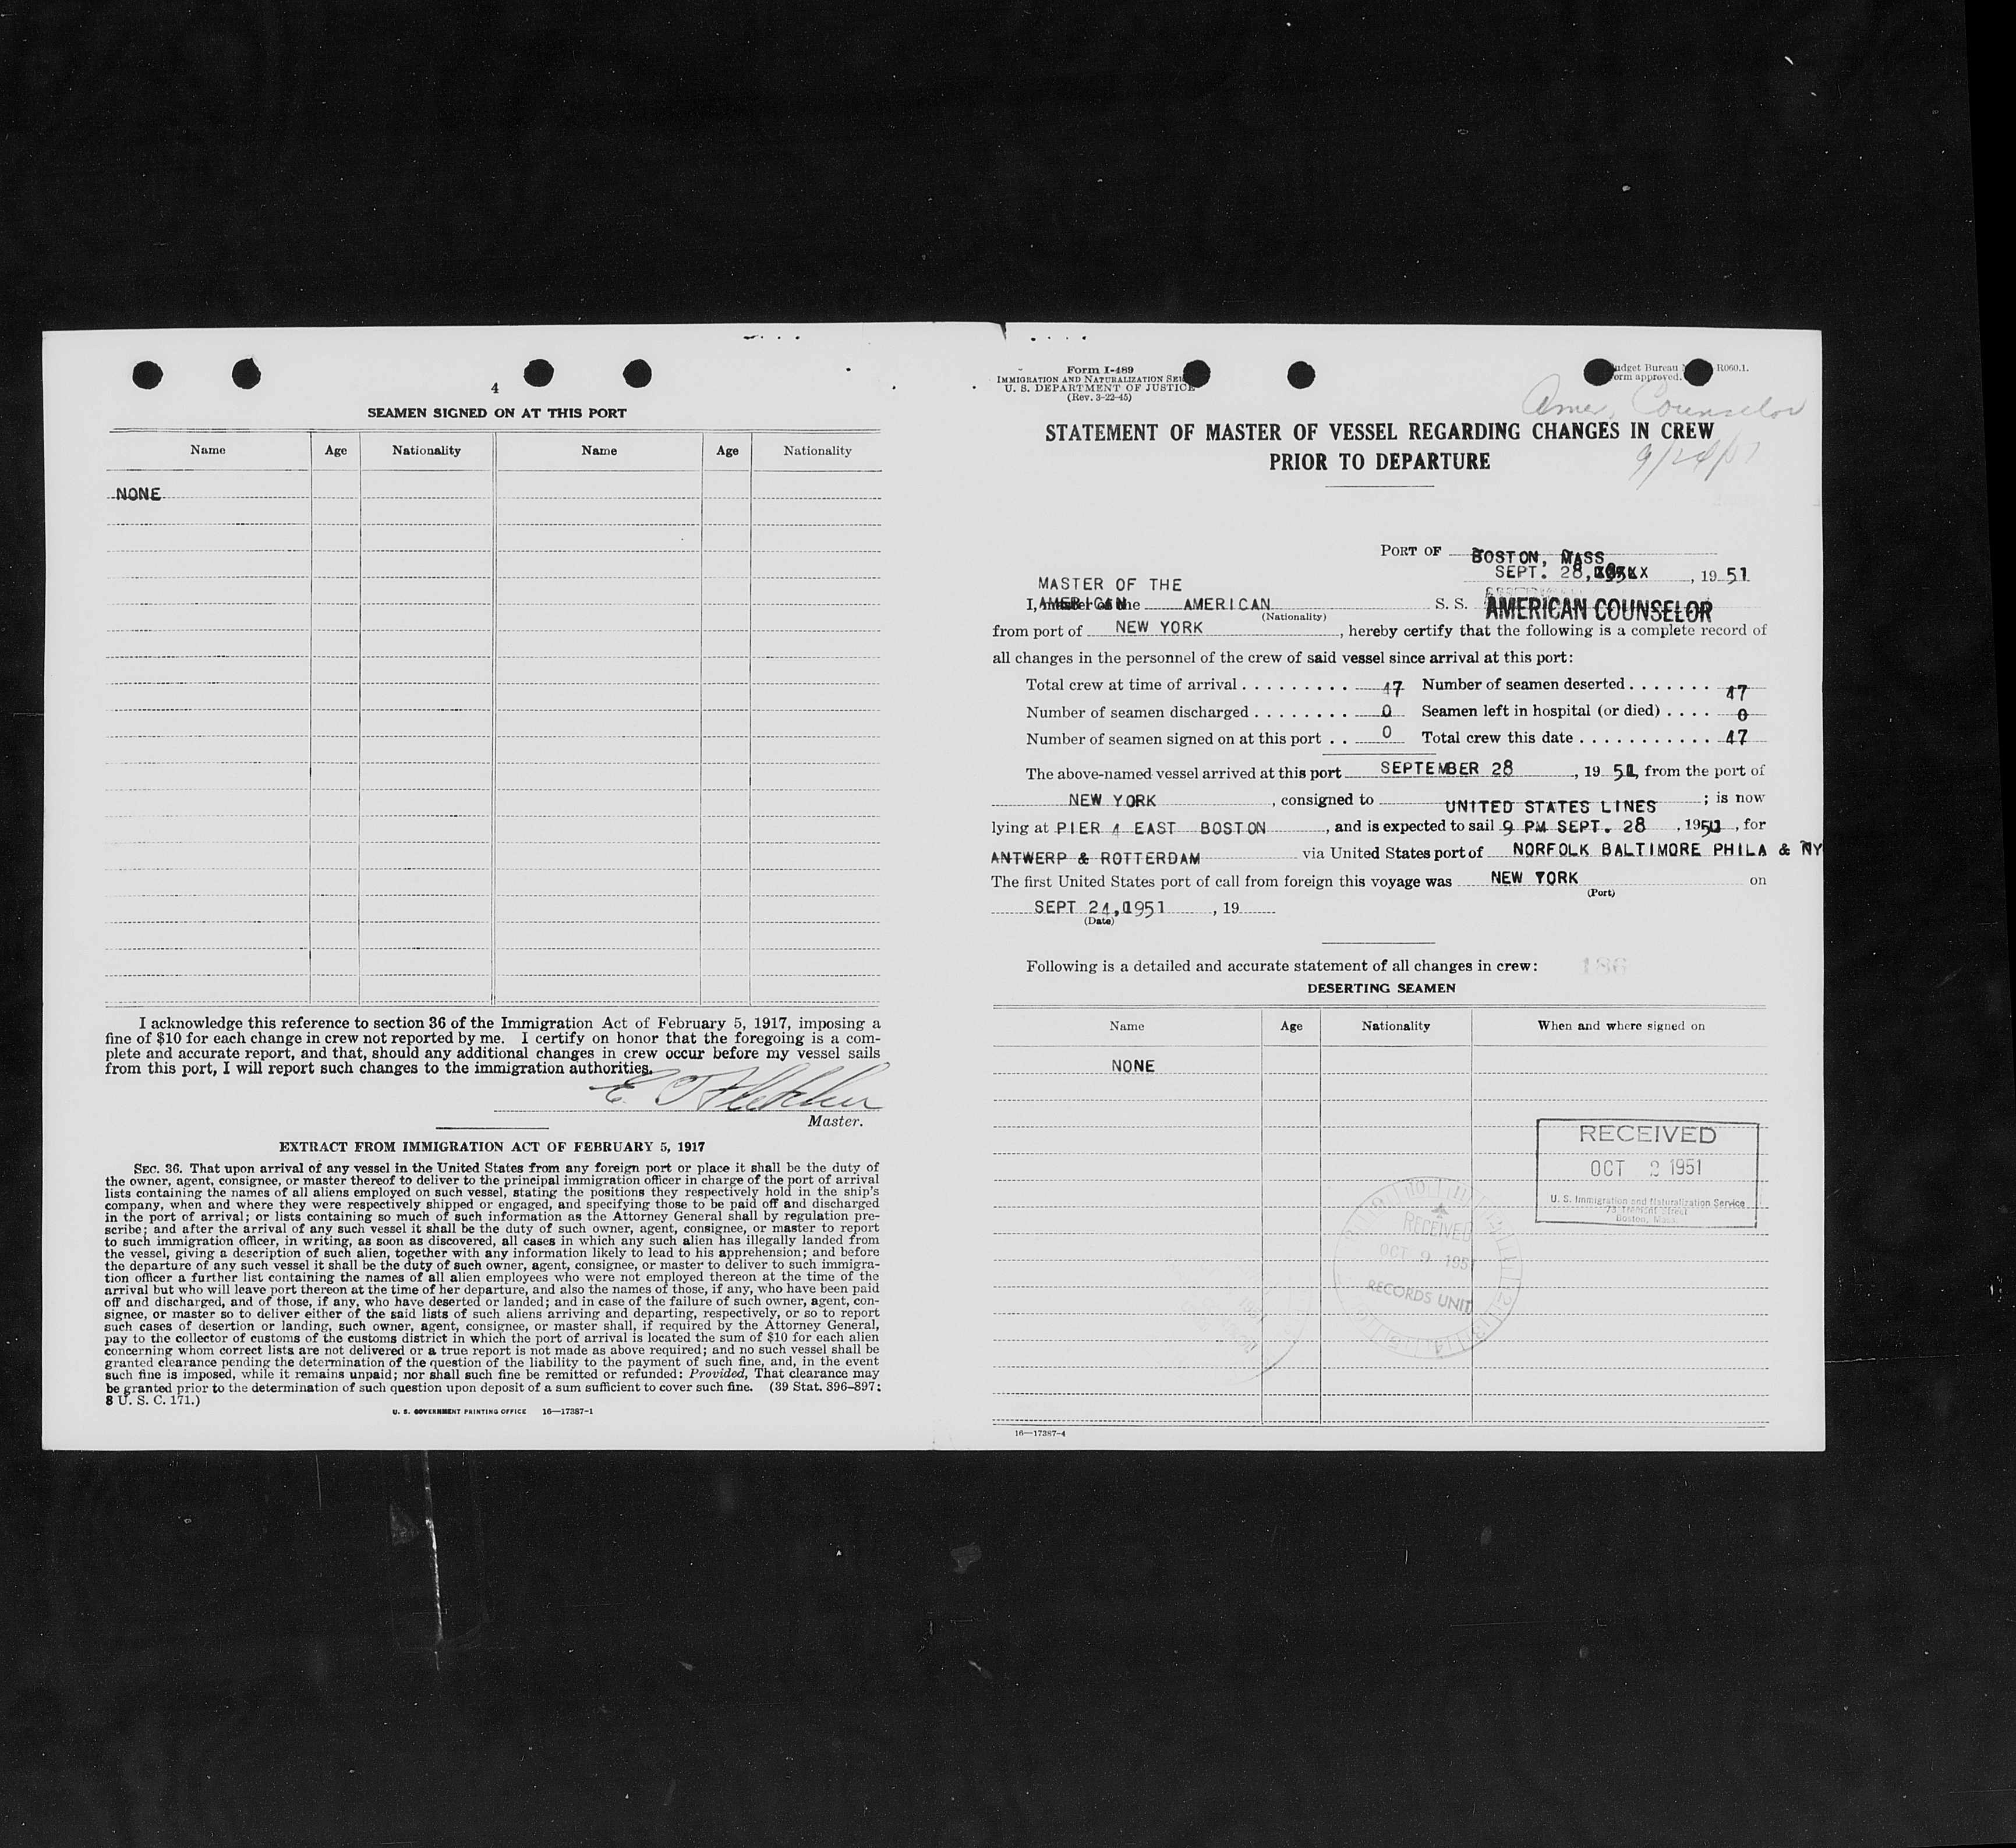 4
SEAMEN SIGNED ON AT THIS PORT
Name Age Nationality Name Age Nationality
NONE
I acknowledge this reference to section 36 of the Immigration Act of February 5, 1917, imposing a
fine of $10 for each change in crew not reported by me. I certify on honor that the foregoing is a com-
plete and accurate report, and that, should any additional changes in crew occur before my vessel sails
from this port, I will report such changes to the immigration authorities.
E T Fletcher
Master.
EXTRACT FROM IMMIGRATION ACT OF FEBRUARY 5, 1917
SEC. 36. That upon arrival of any vessel in the United States from any foreign port or place it shall be the duty of
the owner, agent, consignee, or master thereof to deliver to the principal immigration officer in charge of the port of arrival
lists containing the names of all aliens employed on such vessel, stating the positions they respectively hold in the ship's
company, when and where they were respectively shipped or engaged, and specifying those to be paid off and discharged
in the port of arrival; or lists containing so much of such information as the Attorney General shall by regulation pre-
scribe; and after the arrival of any such vessel it shall be the duty of such owner, agent, consignee, or master to report
to such immigration officer, in writing, as soon as discovered, all cases in which any such alien has illegally landed from
the vessel, giving a description of such alien, together with any information likely to lead to his apprehension; and before
the departure of any such vessel it shall be the duty of such owner, agent, consignee, or master to deliver to such immigra-
tion officer a further list containing the names of all alien employees who were not employed thereon at the time of the
arrival but who will leave port thereon at the time of her departure, and also the names of those, if any, who have been paid
off and discharged, and of those, if any, who have deserted or landed; and in case of the failure of such owner, agent, con-
signee, or master so to deliver either of the said lists of such aliens arriving and departing, respectively, or so to report
such cases of desertion or landing, such owner, agent, consignee, or master shall, if required by the Attorney General,
pay to the collector of customs of the customs district in which the port of arrival is located the sum of $10 for each alien
concerning whom correct lists are not delivered or a true report is not made as above required; and no such vessel shall be
granted clearance pending the determination of the question of the liability to the payment of such fine, and, in the event
such fine is imposed, while it remains unpaid; nor shall such fine be remitted or refunded: Provided, That clearance may
be granted prior to the determination of such question upon deposit of a sum sufficient to cover such fine. (39 Stat. 896-897;
8 U. S. C. 171.)
U. S. GOVERNMENT PRINTING OFFICE 16—17387-1
Form I-489
IMMIGRATION AND NATURALIZATION
U. S. DEPARTMENT OF JUSTICE
(Rev. 3-22-45)
Budget Bureau R060.1.
Form approved.
Amer. Counselor
STATEMENT OF MASTER OF VESSEL REGARDING CHANGES IN CREW
PRIOR TO DEPARTURE
PORT OF BOSTON, MASS
SEPT. 28, , 19 51
MASTER OF THE
I, AMERICAN S. S. AMERICAN COUNSELOR
(Nationality)
from port of NEW YORK , hereby certify that the following is a complete record of
all changes in the personnel of the crew of said vessel since arrival at this port:
Total crew at time of arrival . . . . . . . . . . 47 Number of seamen deserted . . . . . . . 47
Number of seamen discharged . . . . . . . . 0 Seamen left in hospital (or died) . . . . 0
Number of seamen signed on at this port . . 0 Total crew this date . . . . . . . . . . . . 47
The above-named vessel arrived at this port SEPTEMBER 28 , 19 51, from the port of
NEW YORK , consigned to UNITED STATES LINES ; is now
lying at PIER 4 EAST BOSTON , and is expected to sail 9 PM SEPT. 28 , 1951 , for
ANTWERP & ROTTERDAM via United States port of NORFOLK BALTIMORE PHILA & NY
The first United States port of call from foreign this voyage was NEW YORK on
(Port)
SEPT 24, 1951 , 19
(Date)
Following is a detailed and accurate statement of all changes in crew: 186
DESERTING SEAMEN
Name Age Nationality When and where signed on
NONE
RECEIVED
OCT 2 1951
U. S. Immigration and Naturalization Service
73 Tremont Street
Boston, Mass.
RECEIVED
OCT 9 1951
RECORDS UNIT
16—17387-4